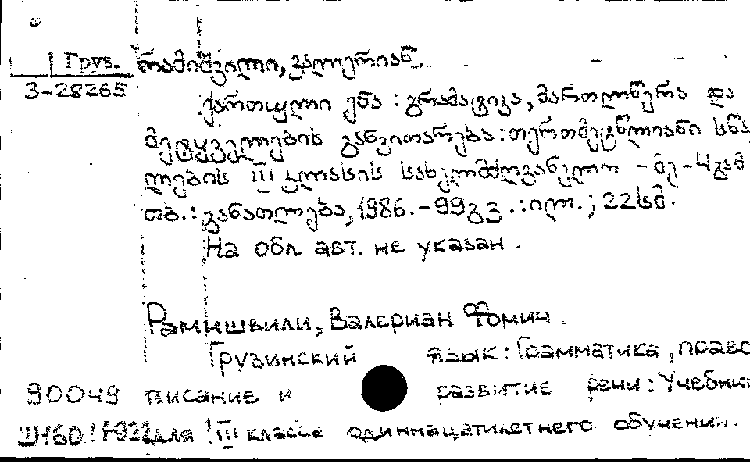 Груз. რამიშვილი, ვალერიან.
3-28265
ქართული ენა : გრამატიკა, მართლწერა და
მეტყველების განვითარება : თერთმეტწლიანი სწა
ლების III კლასის სახელმძღვანელო - მე-4 გამ
თბ. : განათლება, 1986. - 99 გვ. : ილ. ; 22 სმ.
На обл. авт. не указан.
Рамишвили, Валериан Фомич.
Грузинский язык : Грамматика, право
90049 писание и развитие речи : Учебник
для III класса одиннадцатилетнего обучения.